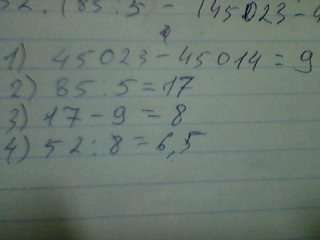 52 : (85 : 5 - (45023 - 4
1) 45023 - 45014 = 9
2) 85 : 5 = 17
3) 17 - 9 = 8
4) 52 : 8 = 6,5